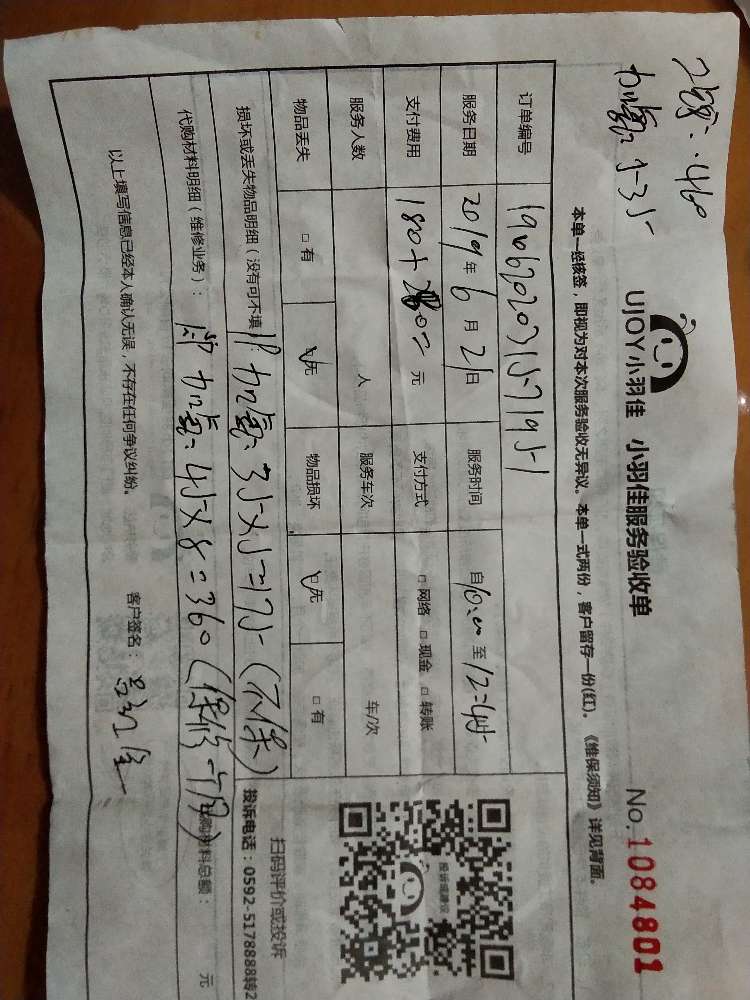 2匹:460
加氟:5-35
UJOY小羽佳 小羽佳服务验收单 No.1084801
本单一经核签，即视为对本次服务验收无异议。本单一式两份，客户留存一份(红)。《维保须知》详见背面。
订单编号
服务日期 2019年6月21日 服务时间 自10:00至12:45
支付费用 180+280= 元 支付方式 □网络 □现金 □转账
服务人数 人 服务车次 车/次
物品丢失 □有 ☑无 物品损坏 ☑无 □有
损坏或丢失物品明细（没有可不填 1P.加氟:35×5=175(不保)
代购材料明细（维修业务）: 加氟:45×8=360(保修一个月) 代购材料总额: 元
以上填写信息已经本人确认无误，不存在任何争议纠纷。 客户签名:
投诉或建议
扫码评价或投诉
投诉电话：0592-5178888转2